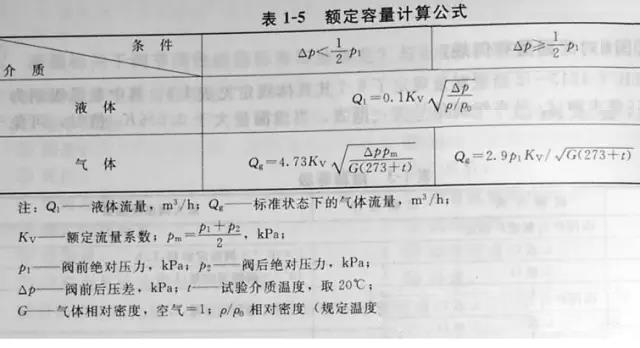 表 1-5 额定容量计算公式
条 件
介 质
Δp<1/2 p₁
Δp≥1/2 p₁
液 体
Q₁=0.1Kᵥ√(Δp/(ρ/ρ₀))
气 体
Q_g=4.73Kᵥ√(Δp p_m/(G(273+t)))
Q_g=2.9p₁Kᵥ/√(G(273+t))
注：Q₁——液体流量，m³/h；Q_g——标准状态下的气体流量，m³/h；
Kᵥ——额定流量系数；p_m=(p₁+p₂)/2，kPa；
p₁——阀前绝对压力，kPa；p₂——阀后绝对压力，kPa；
Δp——阀前后压差，kPa；t——试验介质温度，取 20℃；
G——气体相对密度，空气=1；ρ/ρ₀ 相对密度（规定温度